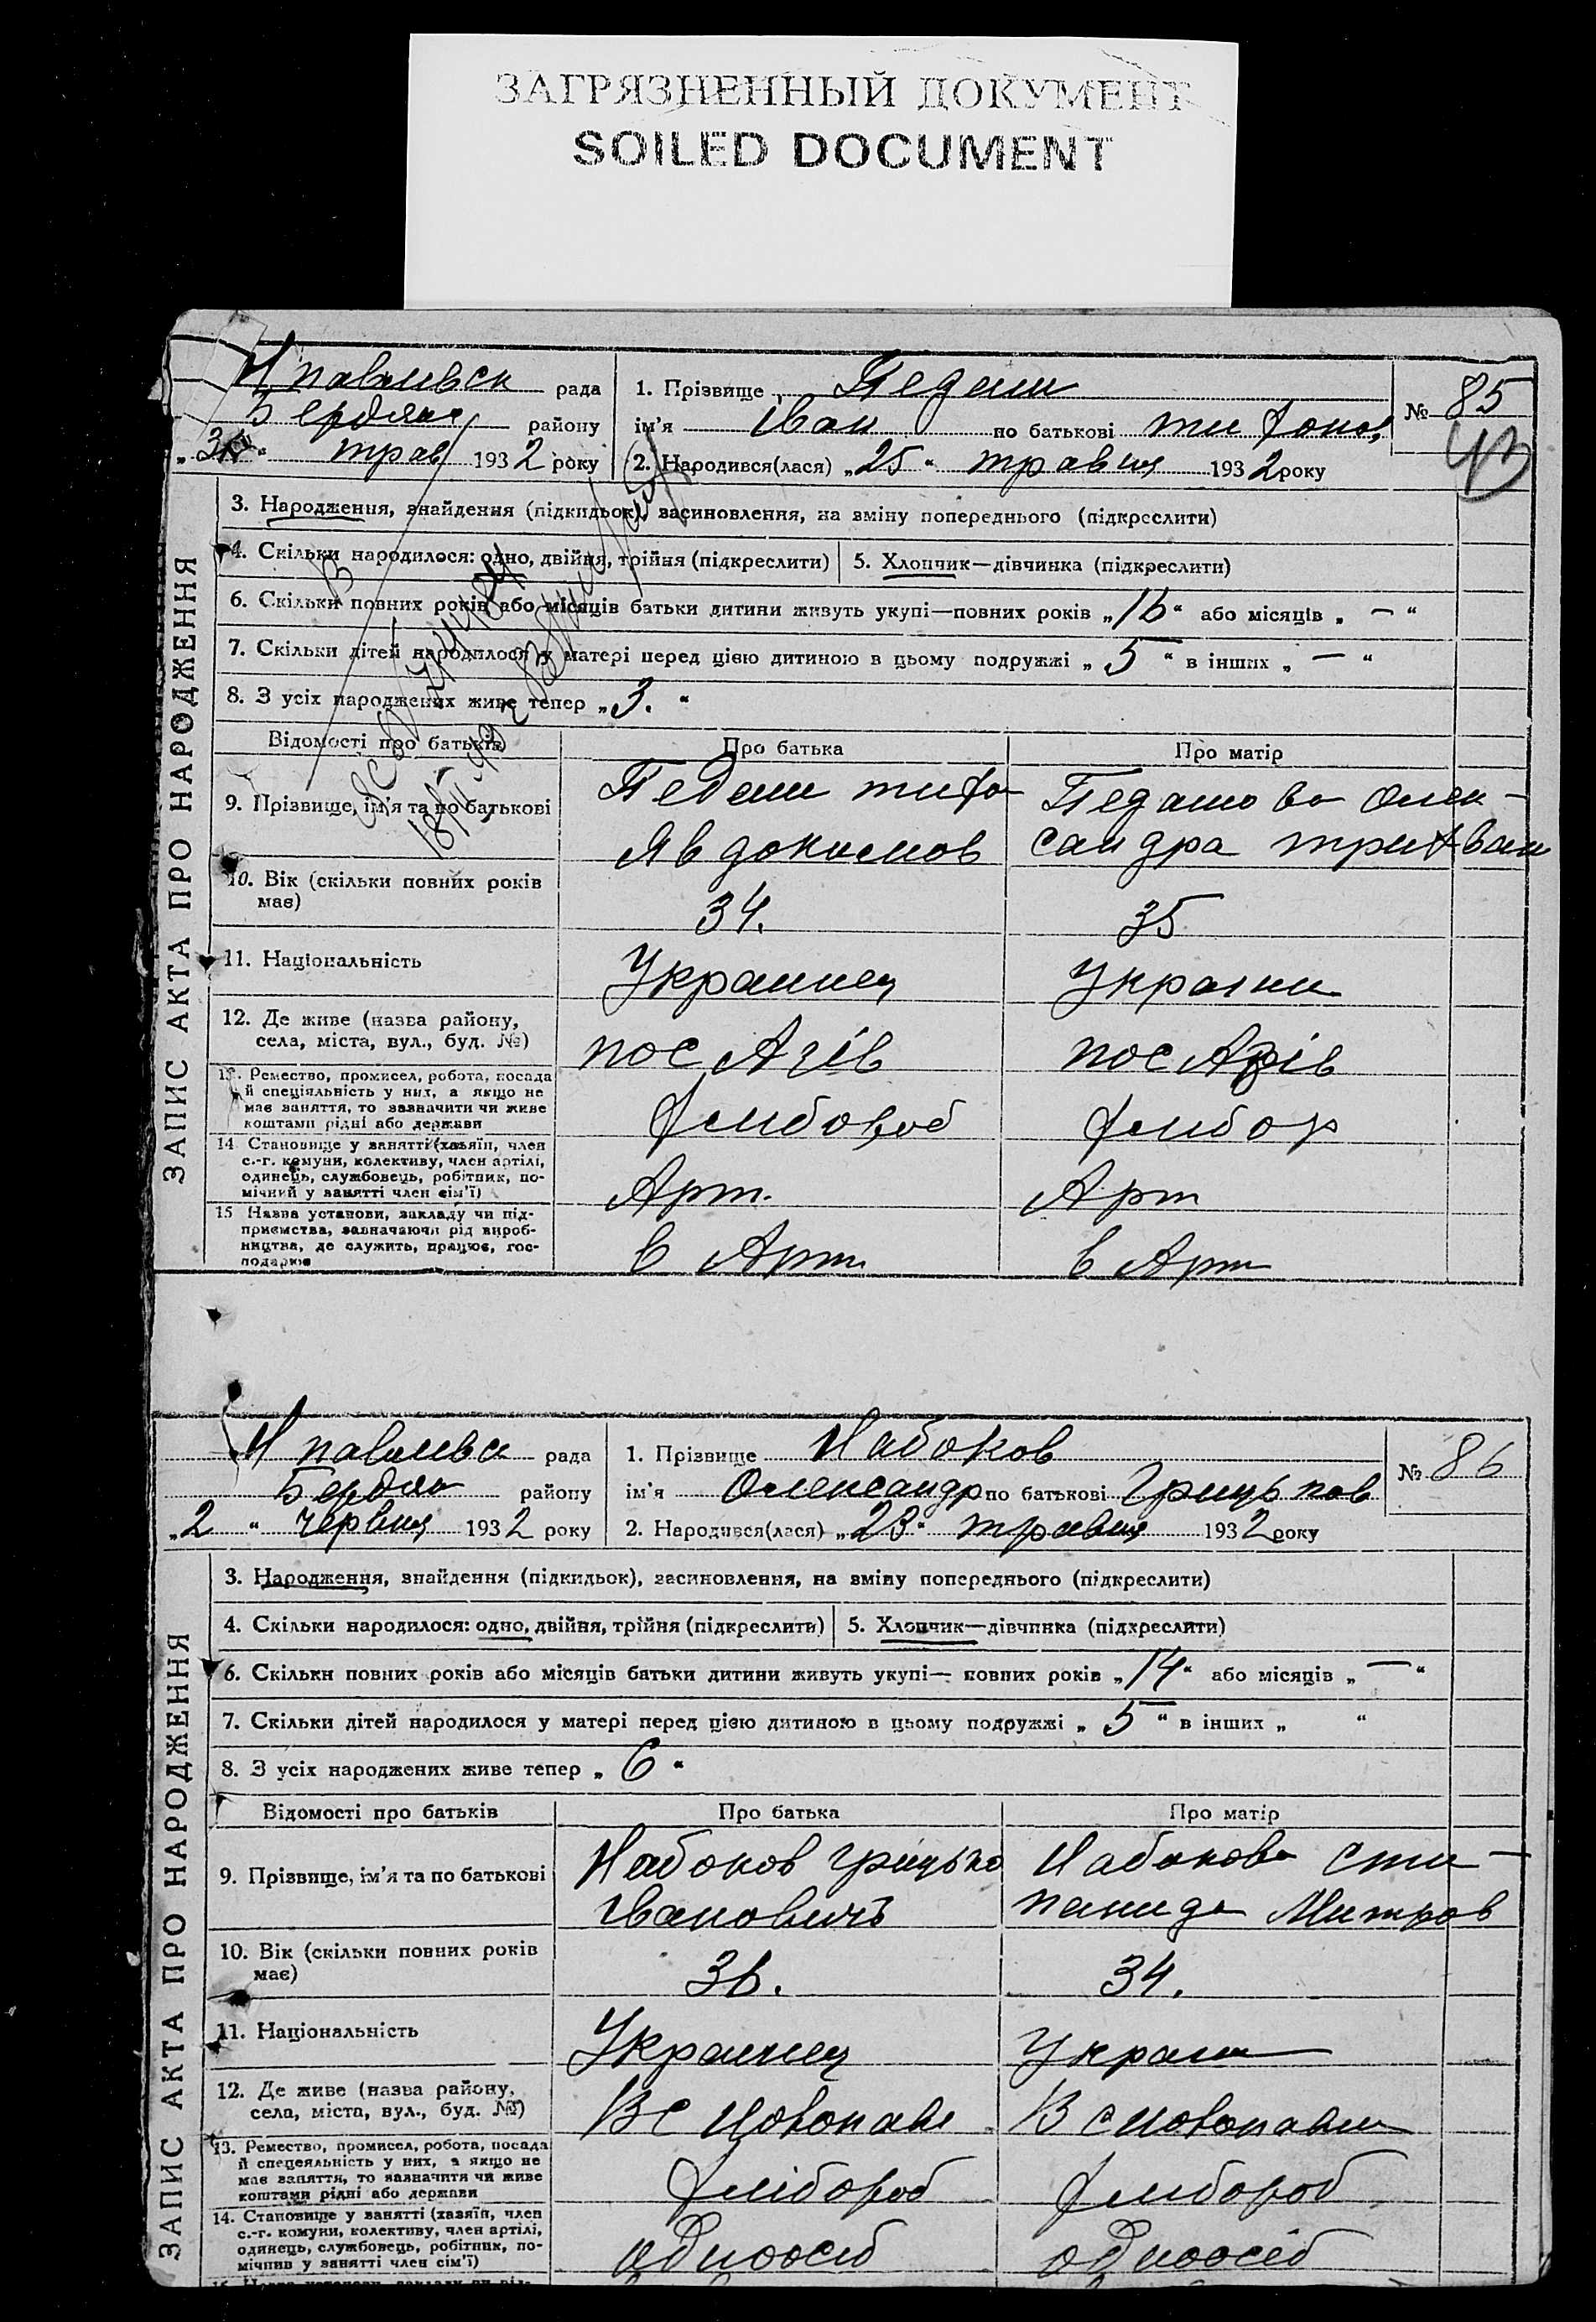 ЗАГРЯЗНЕННЫЙ ДОКУМЕНТ
SOILED DOCUMENT
Нпавливск рада
Бердянс району
трав 1932 року
1. Прізвище Педаш
ім'я Іван по батькові Тифонов
2. Народився(лася) „25“ травня 1932 року
№ 85
43
ЗАПИС АКТА ПРО НАРОДЖЕННЯ
3. Народження, знайдення (підкидьок), засиновлення, на зміну попереднього (підкреслити)
4. Скільки народилося: одно, двійня, трійня (підкреслити) 5. Хлопчик—дівчинка (підкреслити)
6. Скільки повних років або місяців батьки дитини живуть укупі—повних років „16“ або місяців „—“
7. Скільки дітей народилося у матері перед цією дитиною в цьому подружжі „5“ в інших „—“
8. З усіх народжених живе тепер „3.“
Відомості про батьків Про батька Про матір
9. Прізвище, ім'я та по батькові
Педаш Тифо Педашова Олек-
Явдокимов сандра
10. Вік (скільки повних років
має)
34. 35
11. Національність Украинец Украин
12. Де живе (назва району,
села, міста, вул., буд. №)
пос Азів пос Азів
13. Ремество, промисел, робота, посада
й спеціяльність у них, а якщо не
має заняття, то зазначити чи живе
коштами рідні або держави
Хлибороб Хлибор
14 Становище у занятті (хазяїн, член
с.-г. комуни, колективу, член артілі,
одинець, службовець, робітник, по-
мічний у занятті член сім'ї)
Арт. Арт
15 Назва установи, закладу чи під-
приємства, зазначаючи рід вироб-
ництва, де служить, працює, гос-
подарює
в Арт. в Арт
Нпавливск рада
Бердян району
„2“ червня 1932 року
1. Прізвище Набоков
ім'я Олександр по батькові Грицьков
2. Народився(лася) „23“ травня 1932 року
№ 86
ЗАПИС АКТА ПРО НАРОДЖЕННЯ
3. Народження, знайдення (підкидьок), засиновлення, на зміну попереднього (підкреслити)
4. Скільки народилося: одно, двійня, трійня (підкреслити) 5. Хлопчик—дівчинка (підкреслити)
6. Скільки повних років або місяців батьки дитини живуть укупі— повних років „14“ або місяців „—“
7. Скільки дітей народилося у матері перед цією дитиною в цьому подружжі „5“ в інших „ “
8. З усіх народжених живе тепер „6“
Відомості про батьків Про батька Про матір
9. Прізвище, ім'я та по батькові
Набоков Грицько Набокова Сти-
Івановичъ панида Митров
10. Вік (скільки повних років
має)
36. 34.
11. Національність Украинец Украин
12. Де живе (назва району,
села, міста, вул., буд. №)
В с Новопавл В с Новопавли
13. Ремество, промисел, робота, посада
й спецеяльність у них, а якщо не
має заняття, то зазначити чи живе
коштами рідні або держави
Хлібороб Хлибороб
14. Становище у занятті (хазяїн, член
с.-г. комуни, колективу, член артілі,
одинець, службовець, робітник, по-
мічний у занятті член сім'ї)
одноосіб одноосіб